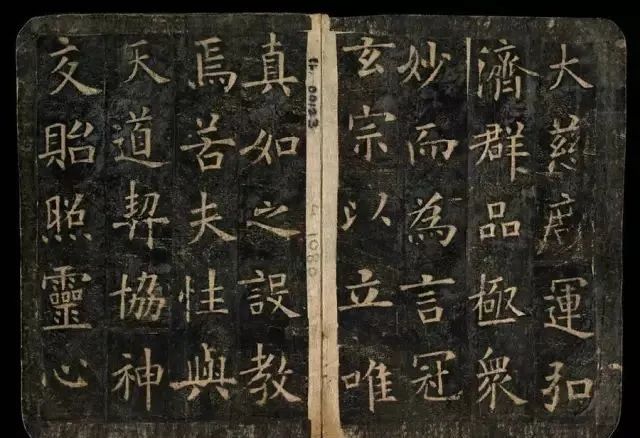 大慈廣運弘
濟群品極衆
妙而為言冠
玄宗以立唯
真如之設教
焉若夫性與
天道契協神
交貽照靈心